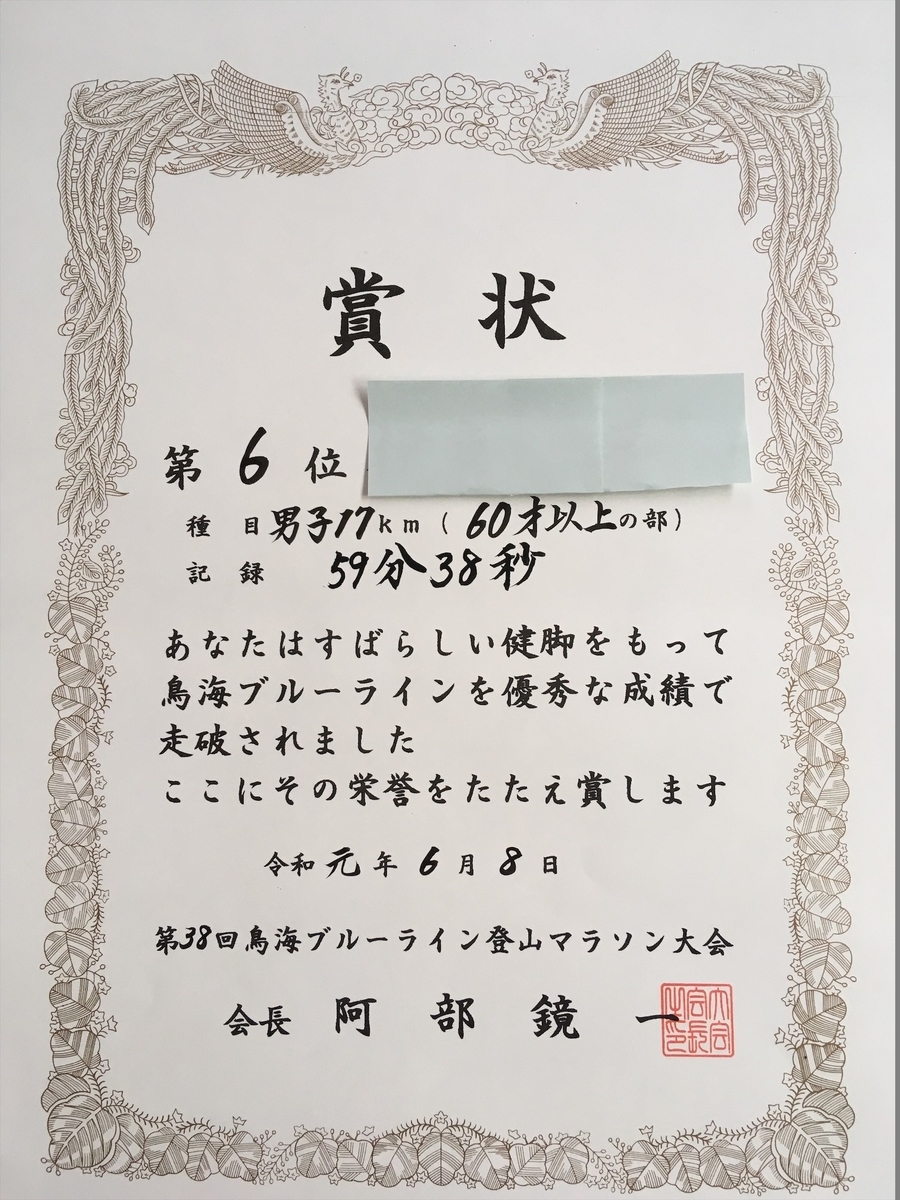 賞状
第6位
種目男子17km(60才以上の部)
記録 59分38秒
あなたはすばらしい健脚をもって
鳥海ブルーラインを優秀な成績で
走破されました
ここにその栄誉をたたえ賞します
令和元年6月8日
第38回鳥海ブルーライン登山マラソン大会
会長 阿部鏡一
大会会長之印